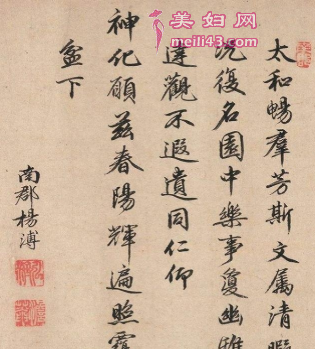 太和暢羣芳斯文属清暇
况復名園中樂事夐幽雅
達觀不遐遺同仁仰
神化願兹春陽輝遍照霄
盆下
南郡楊溥
美妇网
meili43.com